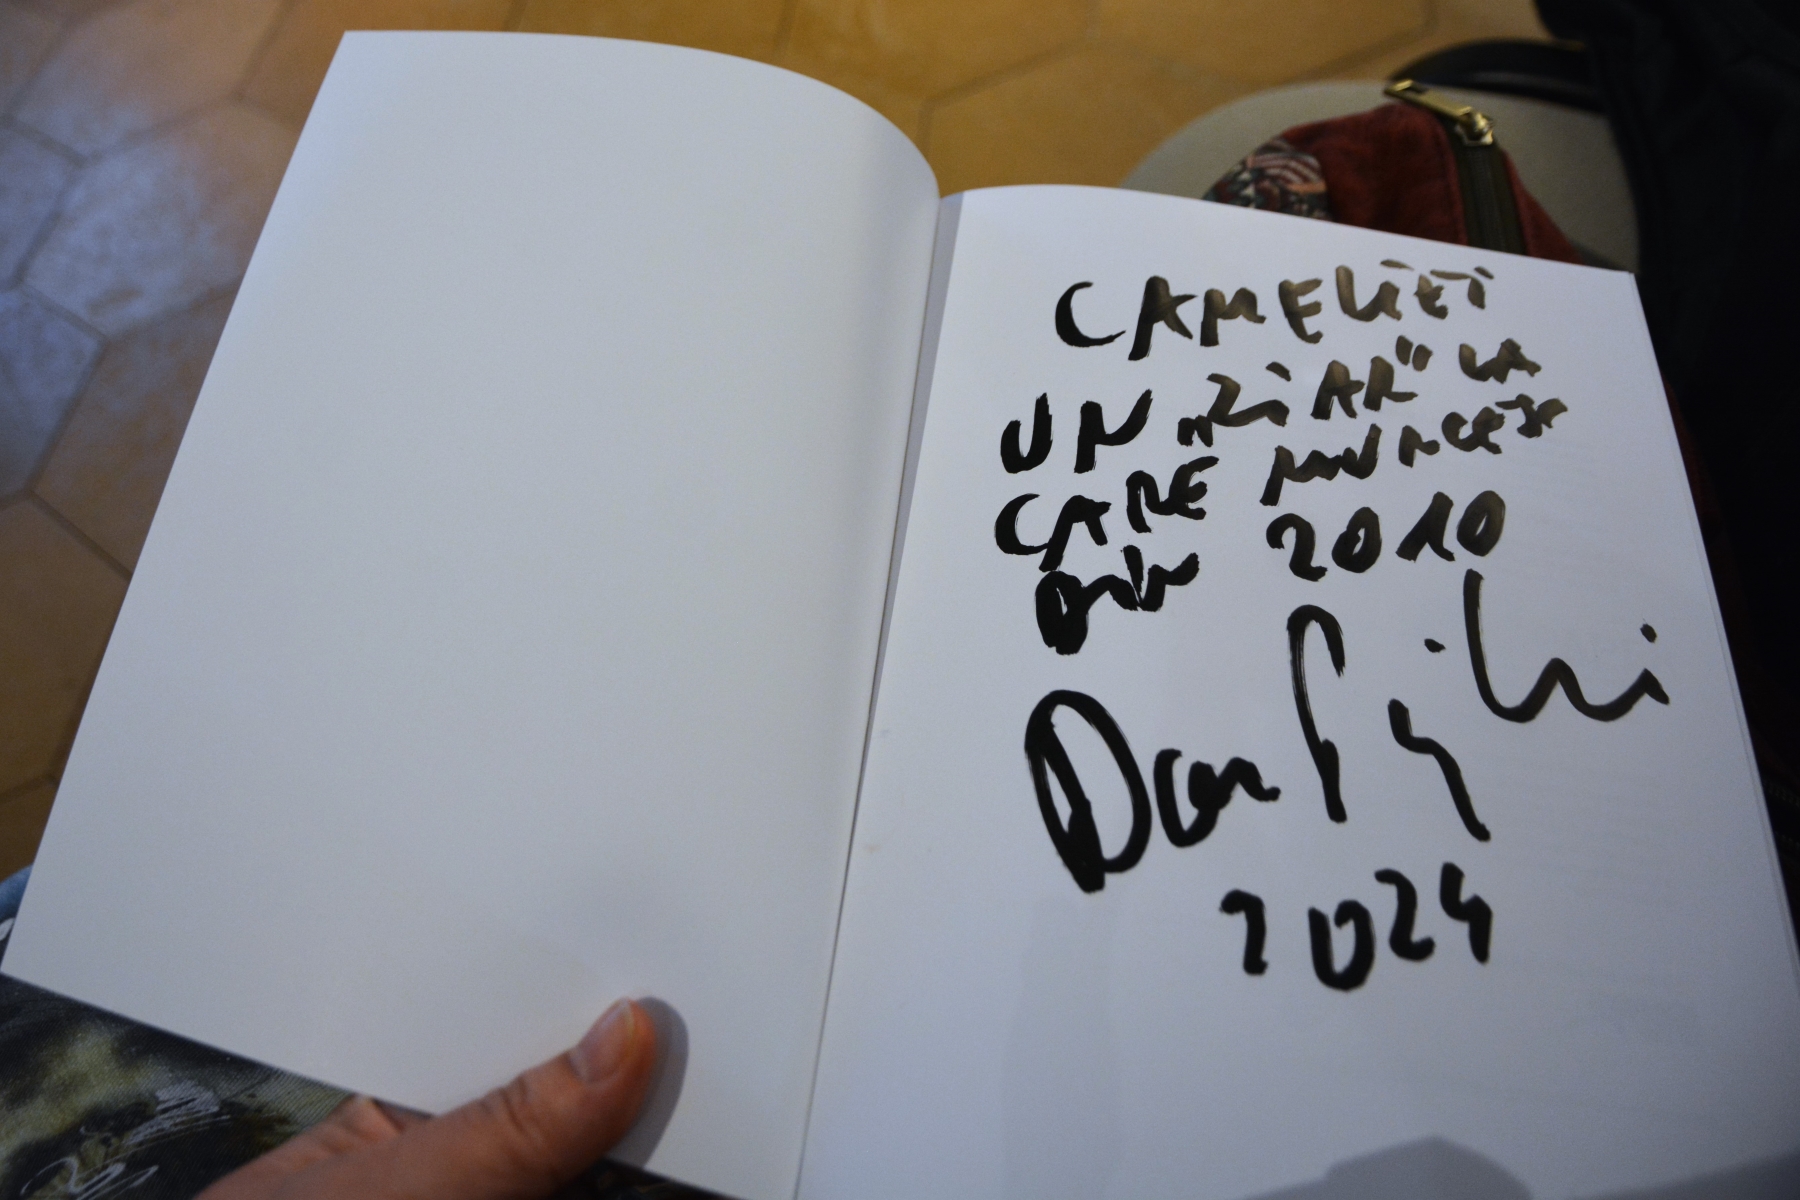 CAMELIEI
UN „ZIAR” LA
CARE MUNCESC
DIN 2010
Dan Perjovschi
2024